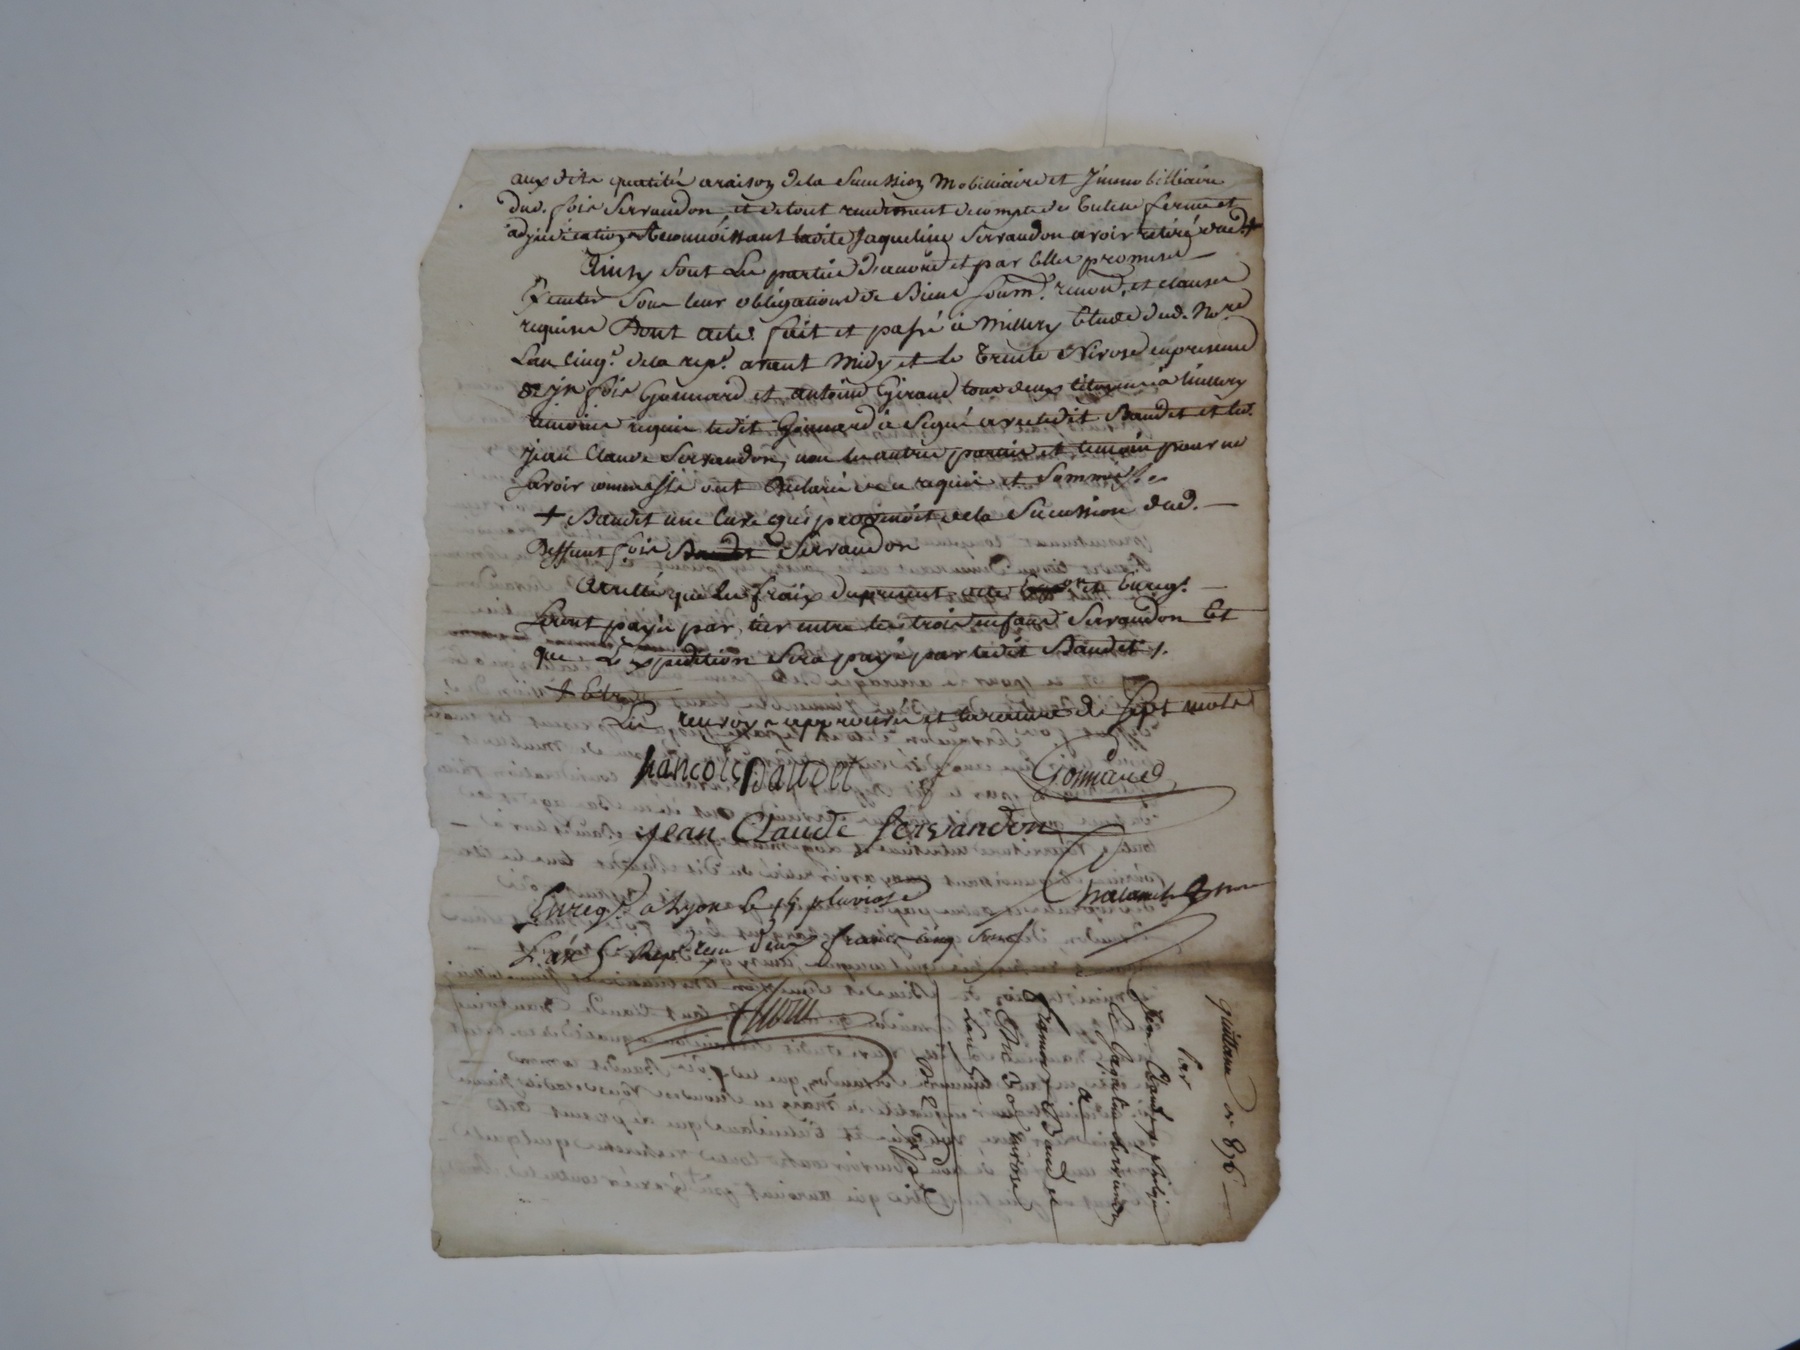 auxdite qualités araison de la Sucession Mobilliaire et Jmmobilliaire
dud. fois Servandon, et de tout rendiment de compte de Tutelle ferme et
adjudication Reconnoissant ladite Jaqueline Servandon avoir retiré dud +
Ainsy sont Les parties d'acord et par Elles promises
Executer Sous leur obligations de Biens soum.s renon. et clauses
requises Dont acte, fait et passé à Millery Etude dud. No.re
L'an cinq.e de la rep.e avant Midy et le Trente Nivose en presence
de fois Gonnard et Antoine Giraud tous deux citoyens à Millery
temoins requis ledit Gonnard à signé avec ledit Baudet et led.
Jean Claude Servandon, non les autres parties et temoin pour ne
savoir comme ils ont Declaré de ce requis et Sommés
+ Baudet une Cuve qui provenoit de la Sucession dud.
Deffunt fois Servandon
Arretté que les fraix du present acte et Enreg.t
Seront payés par tier entre les trois enfans Servandon Et
que L'Expedition sera payé par ledit Baudet
Les renvoy approuvés et la rature de Sept mots
francois Baudet Gonnard
jean Claude servandon
Enreg.é a Lyon le 15 pluviose
L'an 5 Rep. reçu deux francs cinq sous
quittance de 896
par
Jean Claude
et Jaqueline Servandon
a
francois Baudet
Du 30 nivose
L'an 5